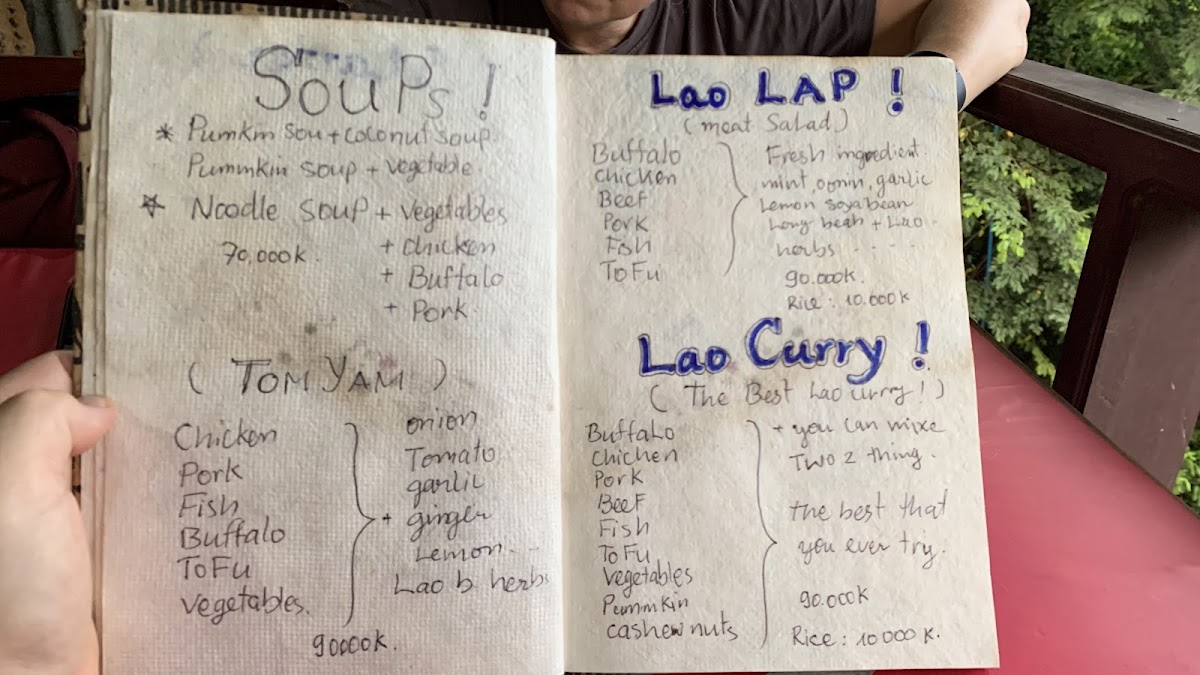 Soups !
* Pumkin Sou + Coconut Soup.
Pummkin Soup + Vegetable.
☆ Noodle Soup + Vegetables
70,000k. + chicken
+ Buffalo
+ Pork
( TOM YAM )
Chicken
Pork
Fish
Buffalo
ToFu
Vegetables.
onion
Tomato
garlic
+ ginger
Lemon. - -
Lao b herbs
90000k.
Lao LAP !
( meat Salad )
Buffalo
chicken
Beef
Pork
Fish
ToFu
Fresh ingredient.
mint, garlic
Lemon Soyabean
Long bean + Lao -
herbs - - - -
90.000k.
Rice : 10.000k
Lao Curry !
( The Best Lao curry ! )
Buffalo
Chichen
Pork
Beef
Fish
ToFu
Vegetables
Pummkin
cashew nuts
+ you can mixe
Two 2 thing.
the best that
you ever try.
90.000k
Rice : 10000 K.